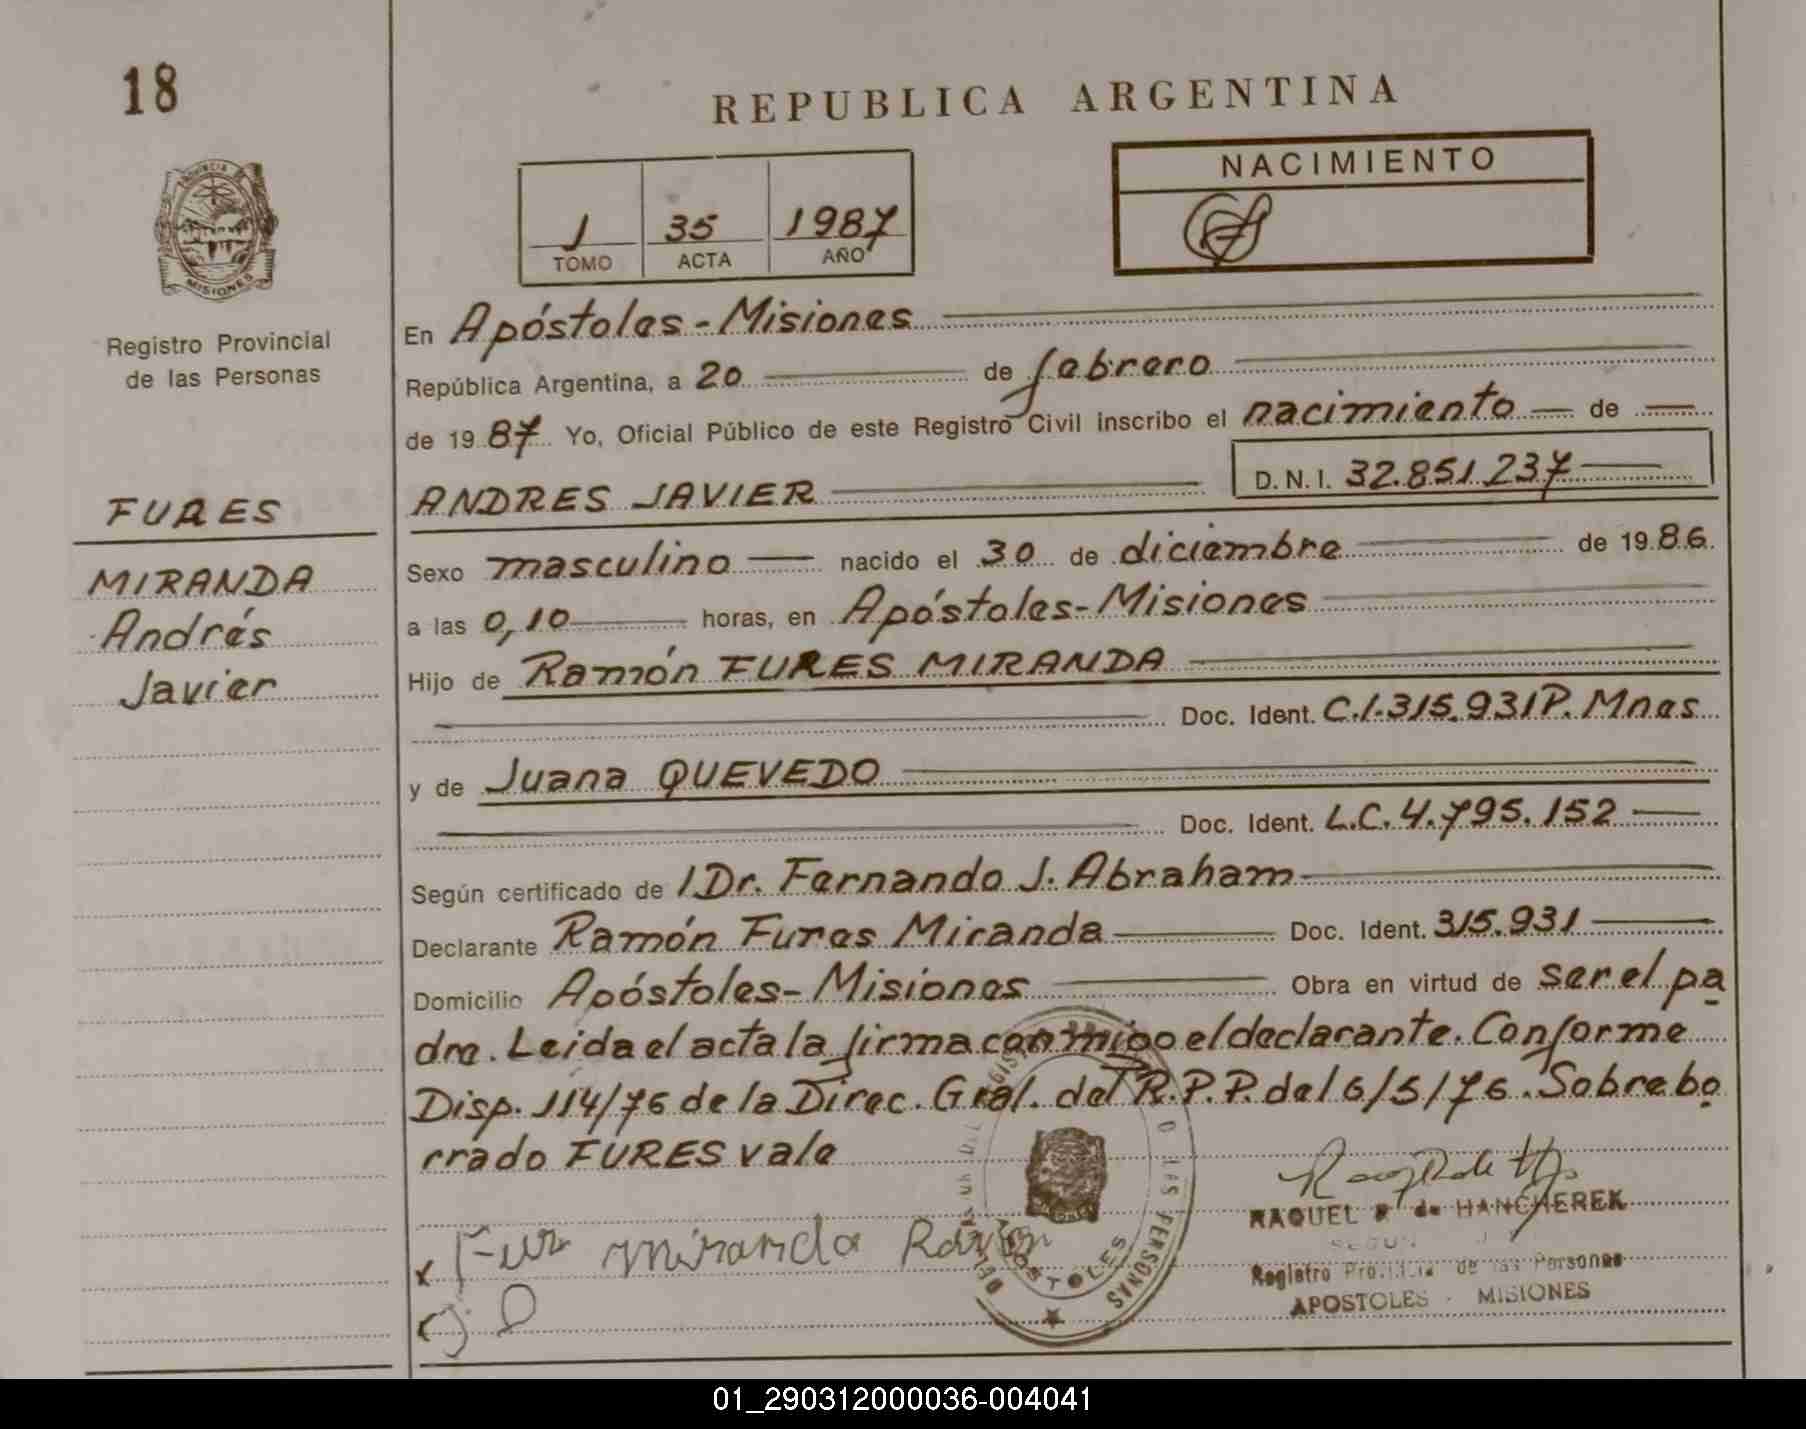 18
REPUBLICA ARGENTINA
NACIMIENTO
1 35 1987
TOMO ACTA AÑO
PROVINCIA DE
MISIONES
Registro Provincial
de las Personas
FURES
MIRANDA
Andrés
Javier
En Apóstoles - Misiones
República Argentina, a 20 de febrero
de 1987 Yo, Oficial Público de este Registro Civil inscribo el nacimiento de
ANDRES JAVIER D. N. I. 32.851.237
Sexo masculino nacido el 30 de diciembre de 1986
a las 0,10 horas, en Apóstoles-Misiones
Hijo de Ramón FURES MIRANDA
Doc. Ident. C.I.315.931P. Mnes
y de Juana QUEVEDO
Doc. Ident. L.C.4.795.152
Según certificado de / Dr. Fernando J. Abraham
Declarante Ramón Fures Miranda Doc. Ident. 315.931
Domicilio Apóstoles-Misiones Obra en virtud de ser el pa
dre. Leida el acta la firma conmigo el declarante. Conforme
Disp. 114/76 de la Direc. Gral. del R.P.P. del 6/5/76. Sobrebo
rrado FURES vale
miranda
RAQUEL R de HANCHEREK
Registro Provincial de las Personas
APOSTOLES - MISIONES
PERSONAS
APOSTOLES
01_290312000036-004041